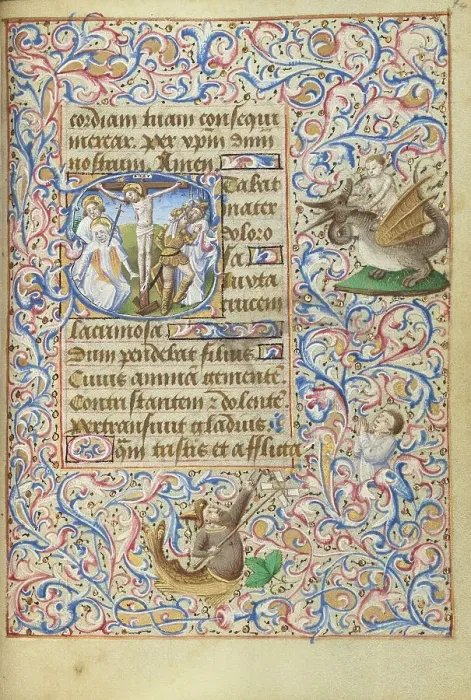 cordiam tuam consequi
merear. Per xpm dnm
nostrum. Amen
Stabat
mater
doloro
sa
Iuxta
crucem
lacrimosa
Dum pendebat filius.
Cuius animā gementē.
Contristantem ⁊ dolentē
Pertransiuit gladius.
O q̄m tristis et afflicta